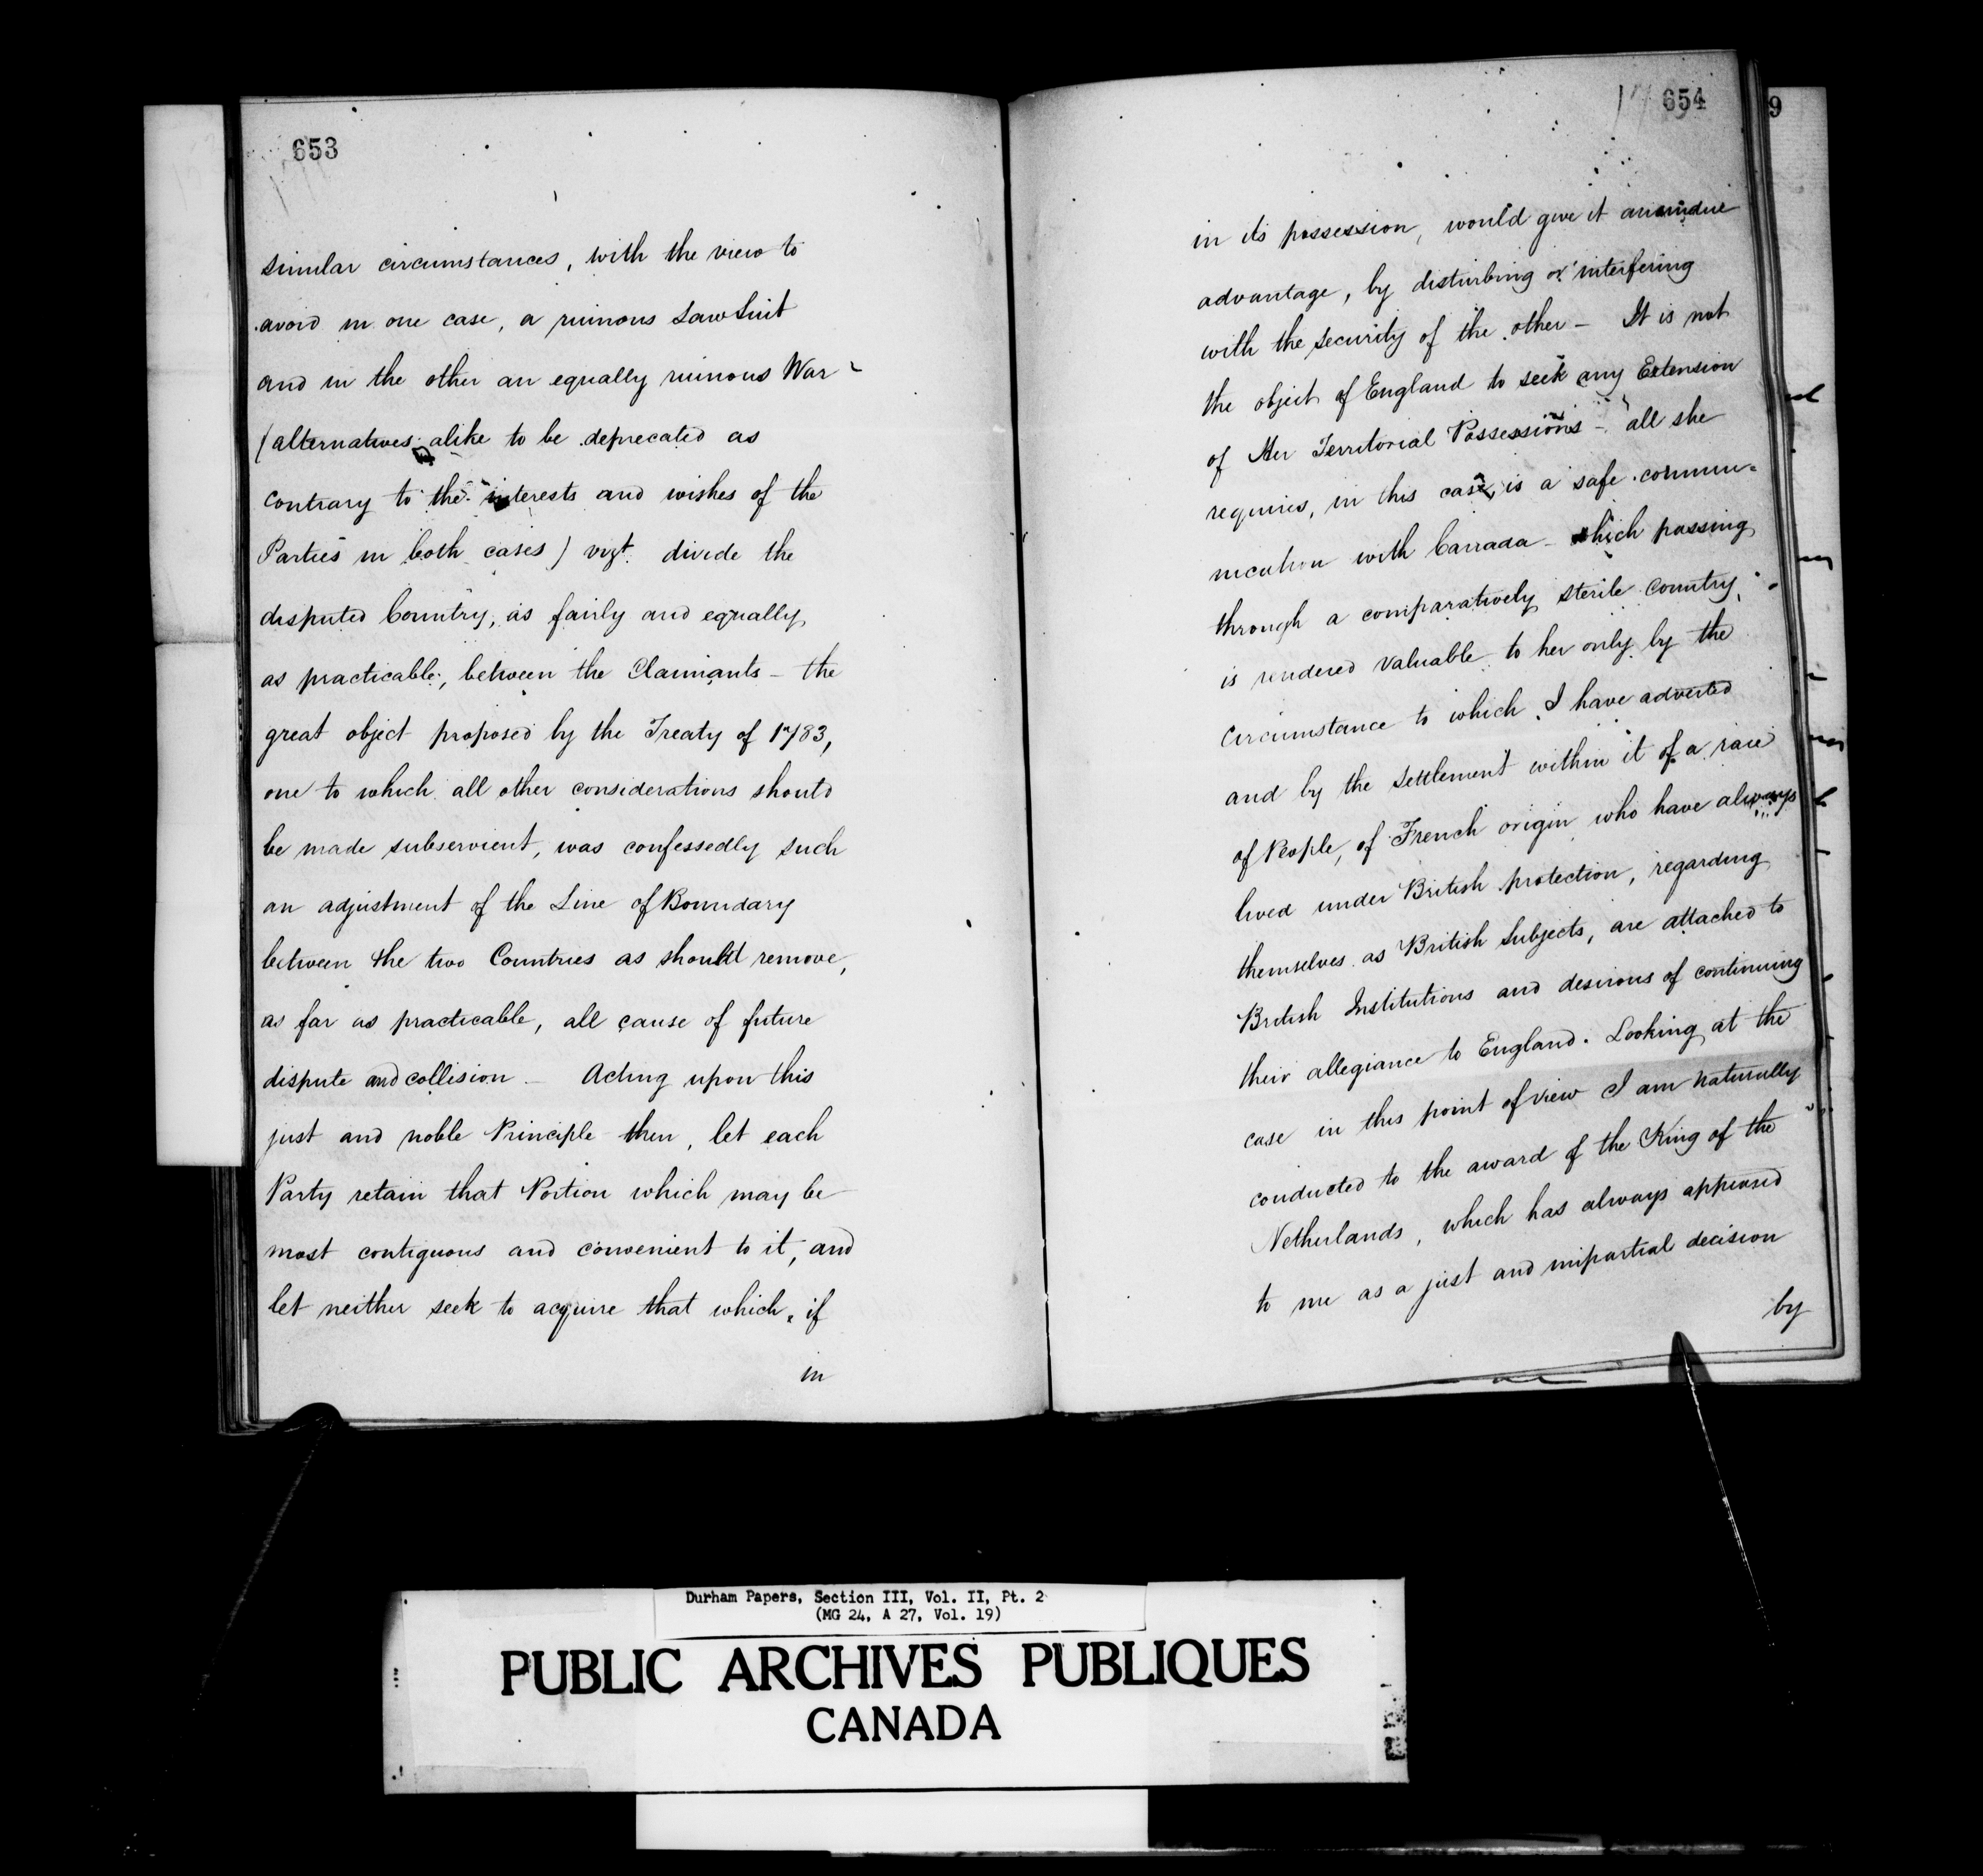 653
similar circumstances, with the view to
avoid in one case, a ruinous Law Suit
and in the other an equally ruinous War -
(alternatives alike to be deprecated as
contrary to the interests and wishes of the
Parties in both cases) vizt. divide the
disputed Country, as fairly and equally
as practicable, between the Claimants - the
great object proposed by the Treaty of 1783,
one to which all other considerations should
be made subservient, was confessedly such
an adjustment of the Line of Boundary
between the two Countries as should remove,
as far as practicable, all cause of future
dispute and collision - Acting upon this
just and noble Principle then, let each
Party retain that Portion which may be
most contiguous and convenient to it, and
let neither seek to acquire that which, if
in
654
in its possession, would give it an undue
advantage, by disturbing or interfering
with the security of the other - It is not
the object of England to seek any Extension
of Her Territorial Possessions - all she
requires, in this case, is a safe commu-
nication with Canada - which passing
through a comparatively sterile Country,
is rendered valuable to her only by the
circumstance to which I have adverted
and by the settlement within it of a race
of People, of French origin who have always
lived under British protection, regarding
themselves as British Subjects, are attached to
British Institutions and desirous of continuing
their allegiance to England. Looking at the
case in this point of view I am naturally
conducted to the award of the King of the
Netherlands, which has always appeared
to me as a just and impartial decision
by
9
Durham Papers, Section III, Vol. II, Pt. 2
(MG 24, A 27, Vol. 19)
PUBLIC ARCHIVES PUBLIQUES
CANADA